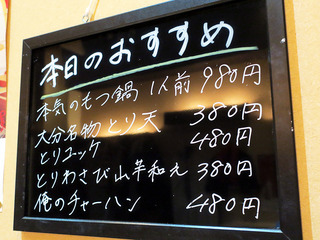 本日のおすすめ
本気のもつ鍋 1人前 980円
大分名物とり天 380円
とりユッケ 480円
とりわさび山芋和え 380円
俺のチャーハン 480円